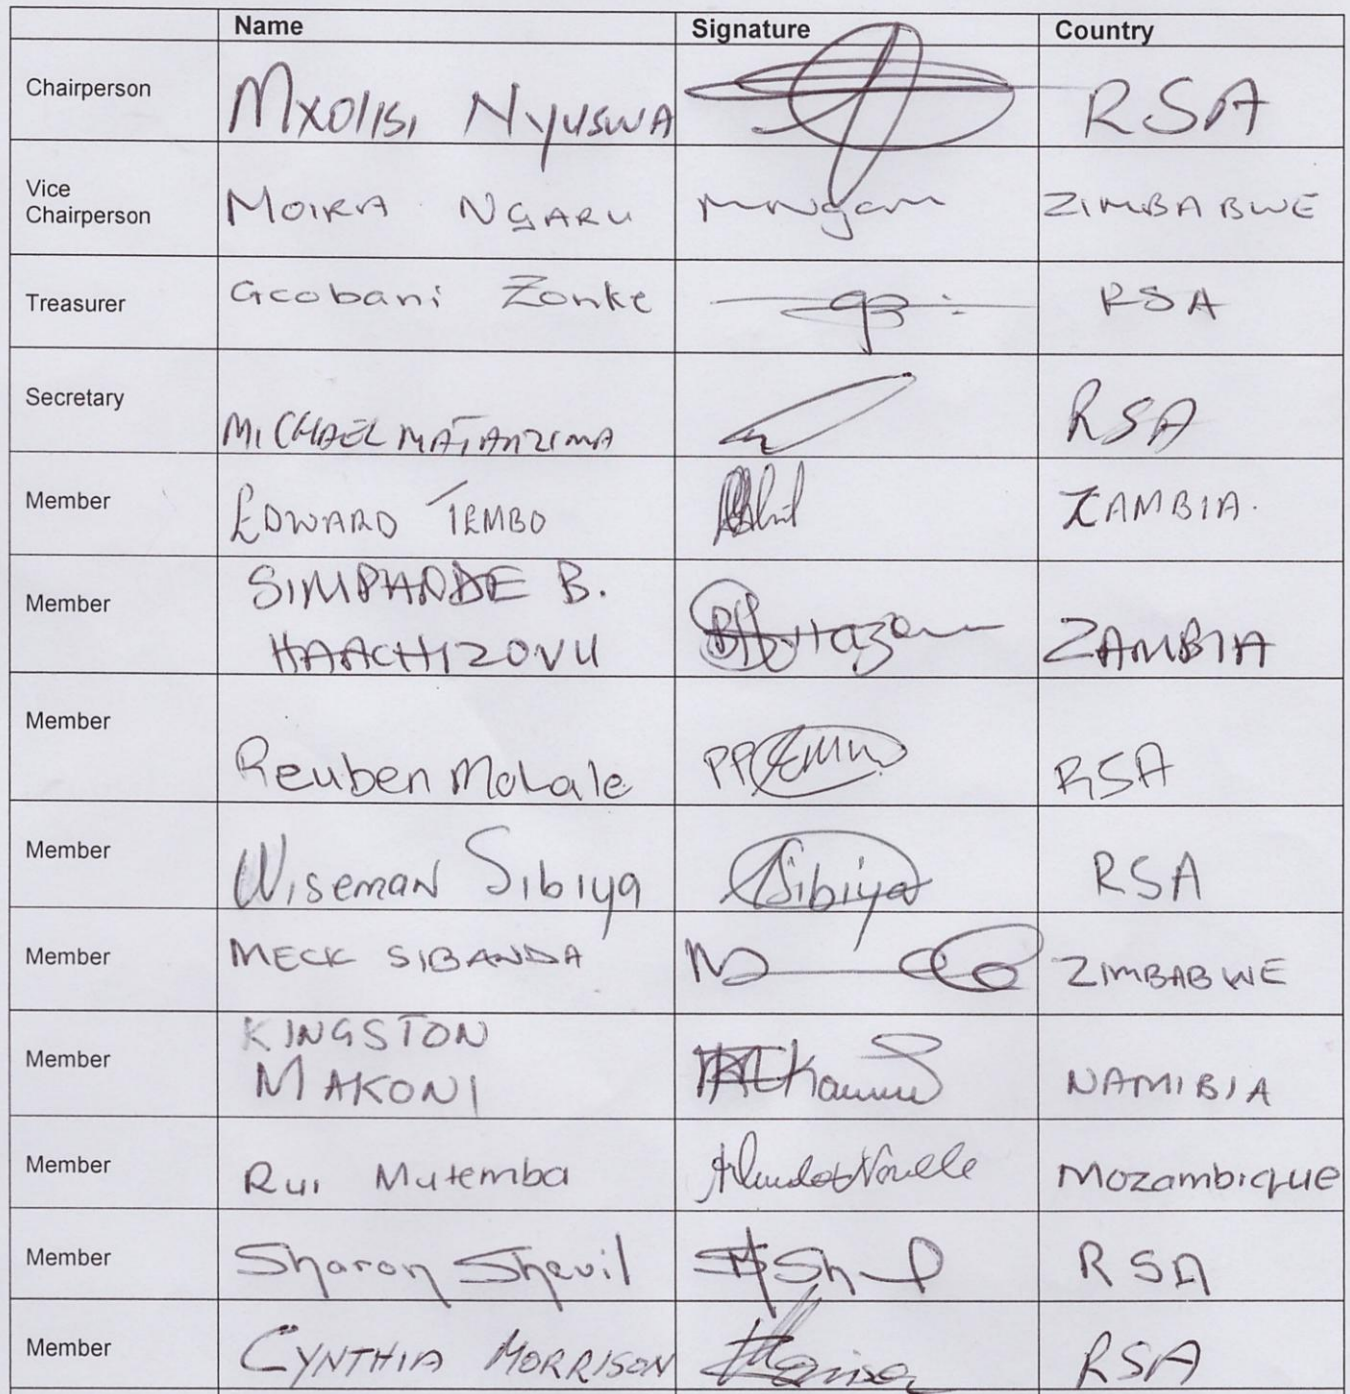 Name Signature Country
Chairperson Mxolisi Nyuswa RSA
Vice
Chairperson Moira Ngaru ZIMBABWE
Treasurer Gcobani Zonke RSA
Secretary MICHAEL MATANZIMA RSA
Member EDWARD TEMBO ZAMBIA.
Member SIMPANDE B.
HAACHIZOVU ZAMBIA
Member Reuben Mohale RSA
Member Wiseman Sibiya Sibiya RSA
Member MECK SIBANDA ZIMBABWE
Member KINGSTON
MAKONI NAMIBIA
Member Rui Mutemba Mozambique
Member Sharon Shevil RSA
Member CYNTHIA MORRISON RSA